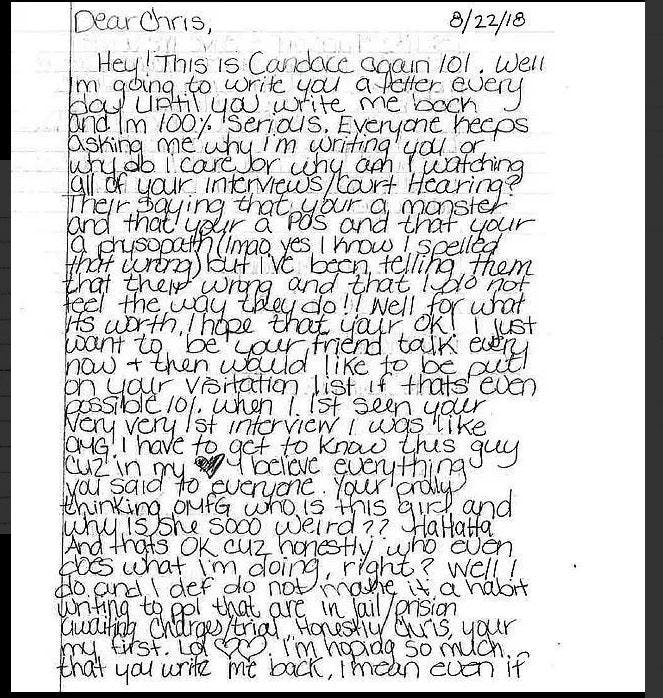 Dear Chris, 8/22/18
Hey! This is Candace again lol. Well
Im going to write you a letter every
day until you write me back
and Im 100% serious. Everyone keeps
asking me why I'm writing you or
why do I care or why am I watching
all of your interviews/Court Hearing?
Their saying that your a monster
and that your a POS and that your
a physopath (lmao yes I know I spelled
that wrong) but I've been telling them
that their wrong and that I do not
feel the way they do!! Well for what
its worth, I hope that your OK! I just
want to be your friend talk every
now + then would like to be put
on your visitation list if thats even
possible lol. When I 1st seen your
very very 1st interview I was like
OMG! I have to get to know this guy
cuz in my I believe everything
you said to everyone. Your prolly
thinking OMFG who is this girl and
why is she sooo weird?? HaHaHa
And thats OK cuz honestly who even
does what I'm doing, right? Well I
do and I def do not make it a habit
writing to ppl that are in jail/prision
awaiting charges/trial, Honestly Chris, your
my first. Lol I'm hoping so much
that you write me back, I mean even if